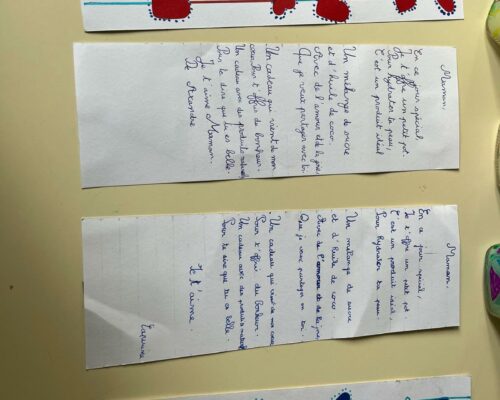 Maman,
En ce jour spécial,
Je t'offre un petit pot.
Pour hydrater ta peau,
C'est un produit idéal
Un mélange de sucre
et d'huile de coco.
Avec de l'amour et de la joie,
Que je veux partager avec toi
Un cadeau qui vient de mon
coeur Pour t'offrir du bonheur.
Un cadeau avec des produits naturels
Pour te dire que tu es belle.
Je t'aime Maman.
De
Maman,
En ce jour spécial,
Je t'offre un petit pot
C'est un produit idéal,
Pour hydrater ta peau.
Un mélange de sucre
et d'huile de coco.
Avec de l'amour et de la joie,
Que je veux partager en toi,
Un cadeau qui vient de mon coeur
Pour t'offrir du bonheur.
Un cadeau avec des produits naturels
Pour te dire que tu es belle.
Je t'aime.